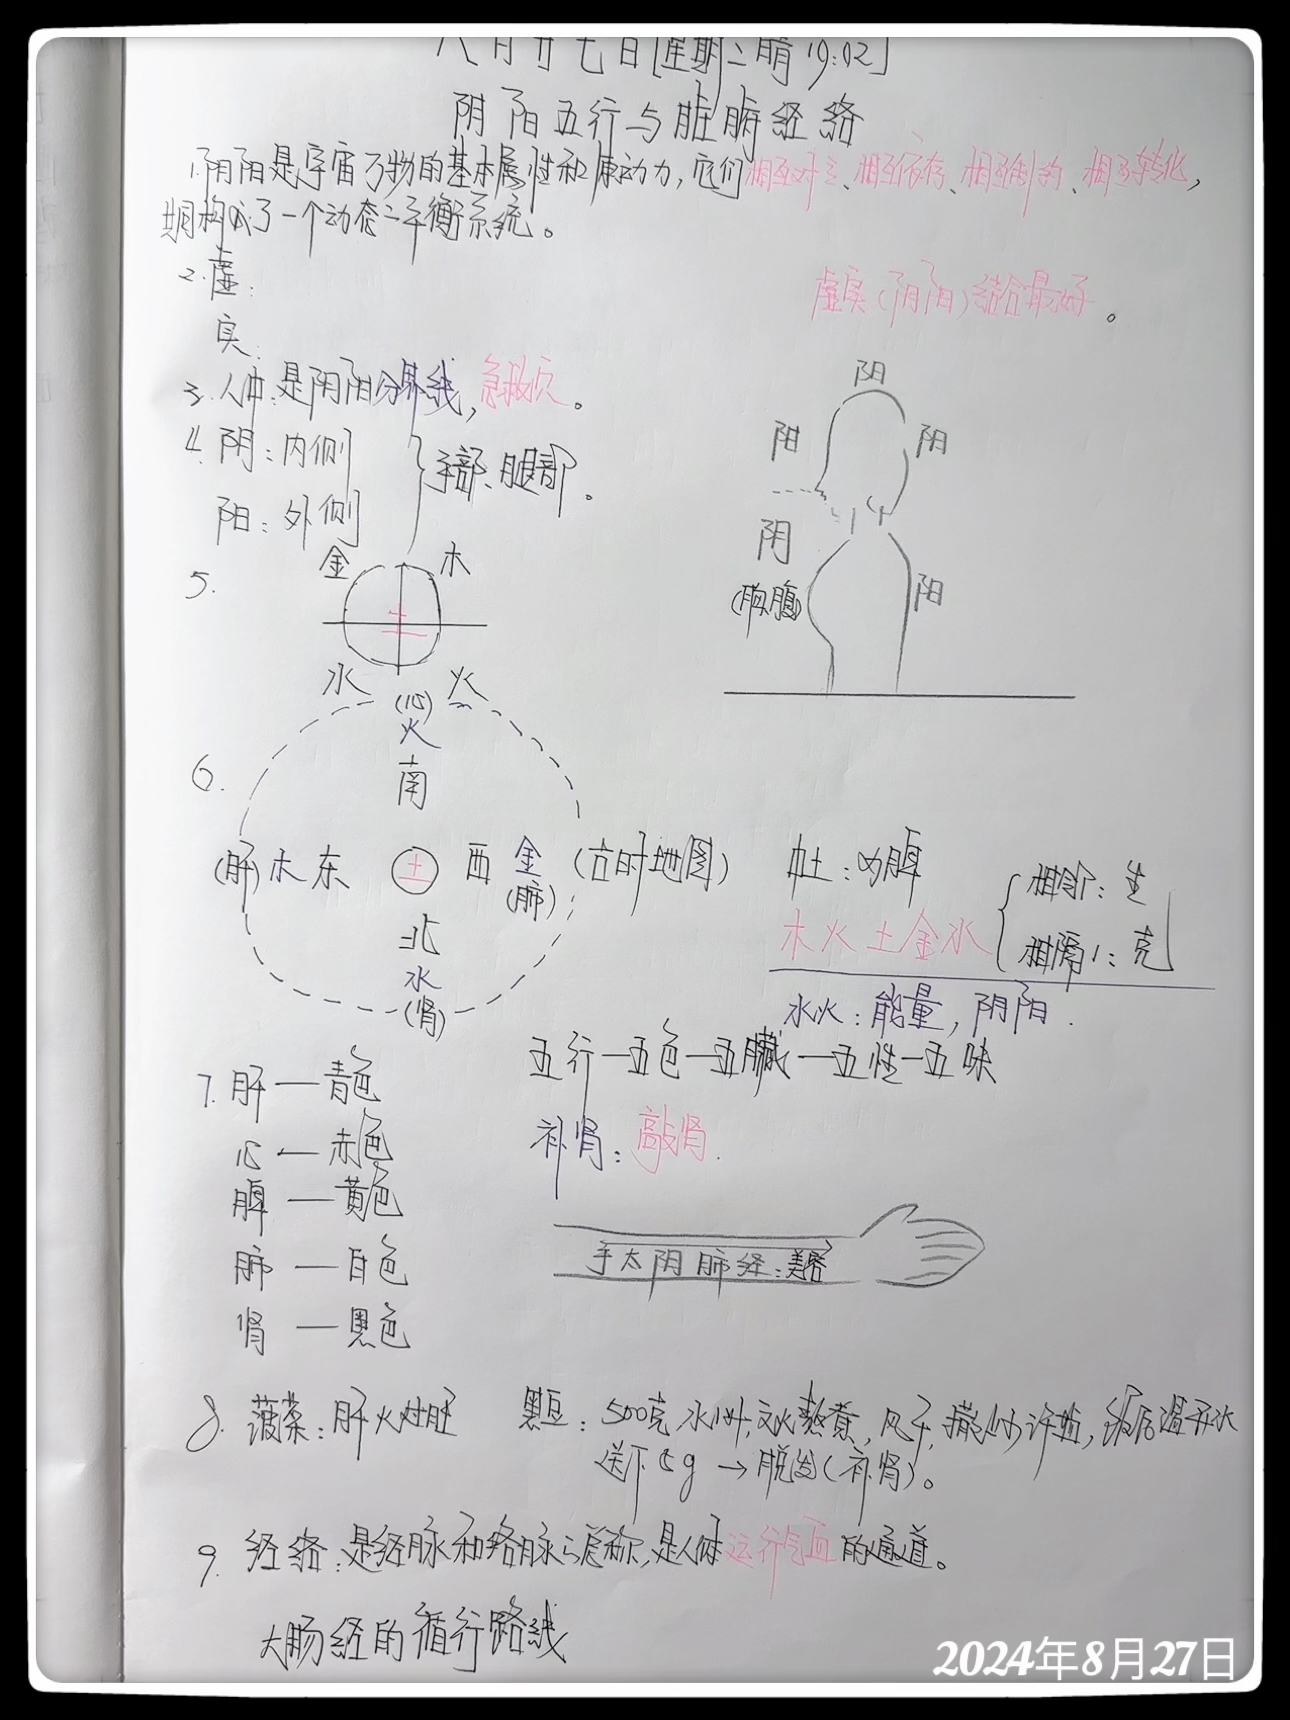 八月廿七日[星期二晴19:02]
阴阳五行与脏腑经络
1.阴阳是宇宙万物的基本属性和原动力,它们相互对立、相互依存、相互制约、相互转化,
构成了一个动态之平衡系统。
2.虚:
虚实(阴阳)结合最好。
实:
3.人中:是阴阳分界线,急救穴。
4.阴:内侧
阳:外侧
手部、腿部。
阳
阳
阴
阴
(胸腹)
阳
5.
金 木
土
水 火
6.
(心)
火
南
(肝)木东 土 西金(肺) (古时地图)
北
水
(肾)
中土:为脾
木火土金水
相邻:生
相隔1:克
水火:能量,阴阳.
五行一五色一五臓一五性一五味
7.肝—青色
心—赤色
脾—黄色
肺—白色
肾—黑色
补肾:敲肾.
手太阴肺经:美容
8.菠菜:肝火旺 黑豆:500克水,文火熬煮,风干,撒少许盐,饭后温开水
送下5g→脱发(补肾)。
9.经络:是经脉和络脉之总称,是人体运行气血的通道。
大肠经的循行路线
2024年8月27日